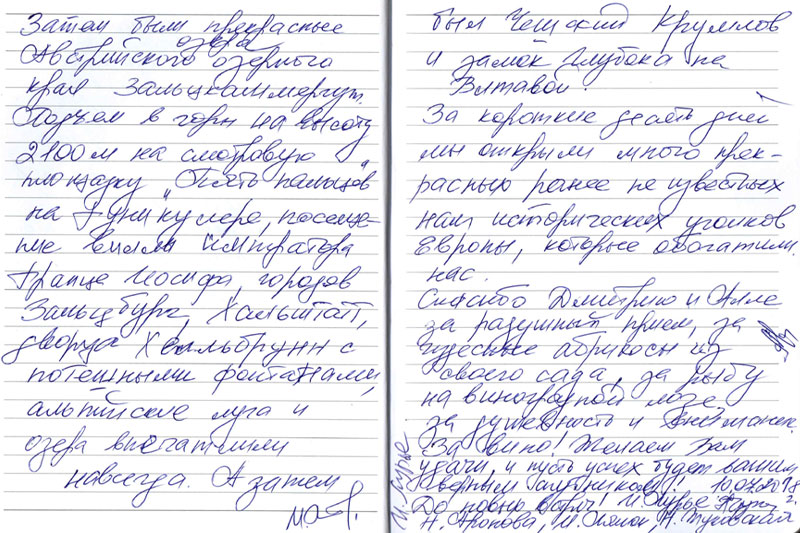 Затем были прекрасные
озера
Австрийского озерного
края Зальцкаммергут.
Подъем в горы на высоту
2100 м на смотровую
площадку „Пять пальцев"
на фуникулере, посеще-
ние виллы Императора
Франце Иосифа, городов
Зальцбург, Хальштатт,
дворца Хельбрунн с
потешными фонтанами,
альпийские луга и
озера впечатлили
навсегда. А затем
был Чешский Крумлов
и замок Глубока на
Влтавой.
За короткие десять дней
мы открыли много прек-
расных ранее не известных
нам исторических уголков
Европы, которые обогатили
нас.
Спасибо Дмитрию и Алле
за радушный прием, за
чудесные абрикосы из
своего сада, за рыбу
на виноградной лозе,
за душевность и внимание.
За вино! Желаем Вам
удачи, и пусть успех будет вашим
верным спутником! 10.07.2018 г.
До новых встреч!